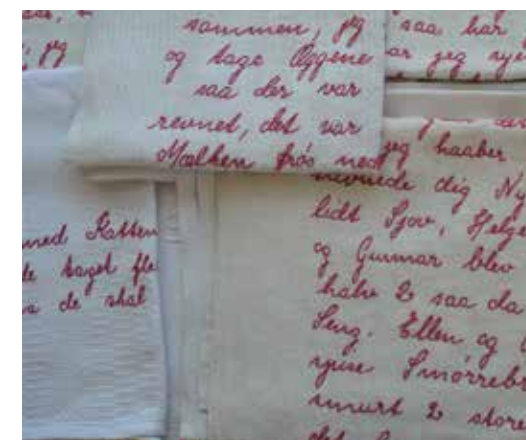 sammen, jeg
og tage Æggene
saa der var
revnet, det var
Mælken frøs ned
saa har
ar jeg sye
jeg
jeg haaber
nævnede dig Ny
lidt Sjov, Helge
og Gunnar blev
halv 2 saa da
Seng. Ellen og
spise Smørrebr
smurt 2 store
med Katten
de taget fle
de skal